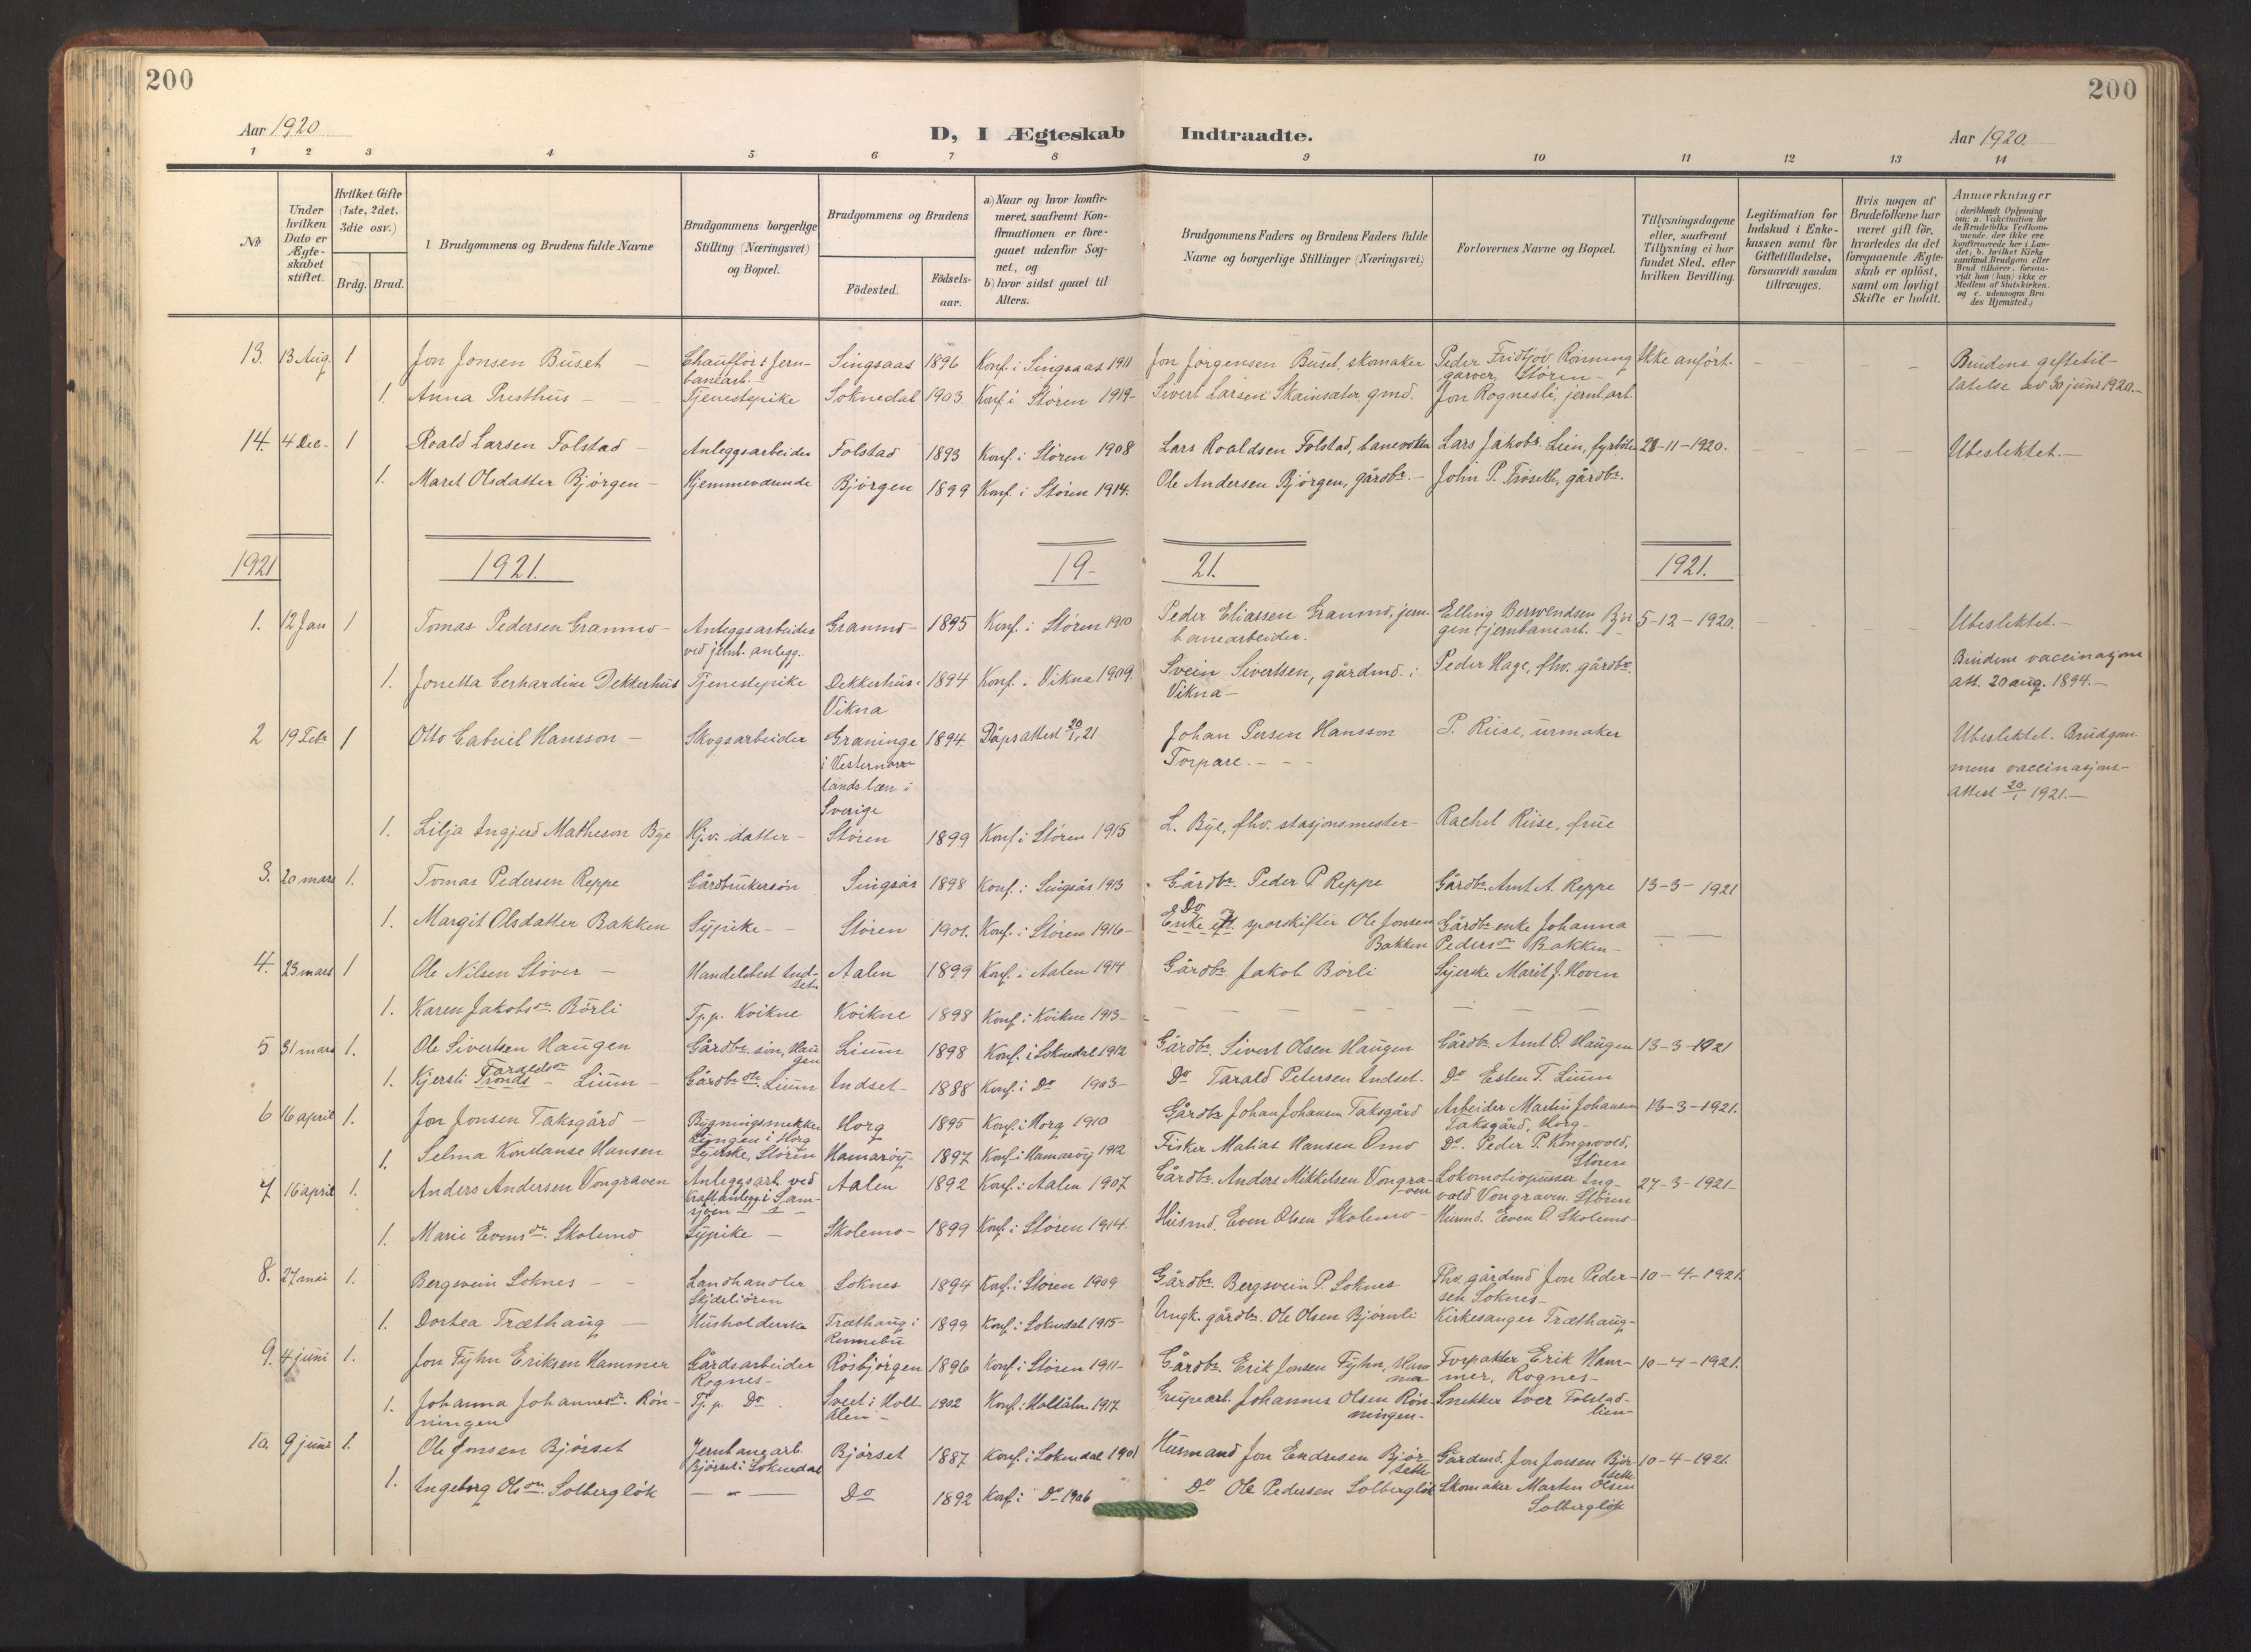 200
200
Aar 1920
D, I Ægteskab Indtraadte.
Aar 1920
1 2 3 4 5 6 7 8 9 10 11 12 13 14
No
Under hvilken Dato er Ægteskabet stiftet.
Hvilket Gifte (1ste, 2det, 3die osv.)
Brdg. Brud.
Brudgommens og Brudens fulde Navne
Brudgommens borgerlige Stilling (Næringsvei) og Bopæl.
Brudgommens og Brudens
Födested.
Födsels-aar.
a) Naar og hvor konfir-
meret, saafremt Kon-
firmationen er fore-
gaaet udenfor Sog-
net, og
b) hvor sidst gaaet til
Alters.
Brudgommens Faders og Brudens Faders fulde
Navne og borgerlige Stillinger (Næringsvei)
Forlovernes Navne og Bopæl.
Tillysningsdagene
eller, saafremt
Tillysning ei har
fundet Sted, efter
hvilken Bevilling.
Legitimation for
Indskud i Enke-
kassen samt for
Giftetilladelse,
forsaavidt saadan
tiltrænges.
Hvis nogen af
Brudefolkene har
været gift før,
hvorledes da det
foregaaende Ægte-
skab er opløst,
samt om lovligt
Skifte er holdt.
Anmærkninger
(deriblandt Oplysning
om: a. Vakcination for
de Brudefolks Vedkom-
mende, der ikke ere
konfirmerede her i Lan-
det; b. hvilket Kirke
samfund Brudgom eller
Brud tilhører, forsaa-
vidt han (hun) ikke er
Medlem af Statskirken,
og c. udensogns Bru
des Hjemsted.)
13. 13 Aug. 1 Jon Jonsen Buset — Chauffør & Jern- Singsaas 1896 Konf. i Singsaas 1911 Jon Jørgensen Buset, skomaker Peder Fridtjov Rønning Ikke anført. Brudens giftetil-
banearb. garver, Støren —
1. Anna Presthus — Tjenestepike Soknedal 1903. Konf. i Støren 1919 - Sivert Larsen Skainsæter, gmd. Jon Rognesli, jernb.arb. latelse av 30 juni 1920. —
14. 4 Dec. 1 Roald Larsen Folstad — Anleggsarbeider Folstad 1893 Konf. i Støren 1908 Lars Roaldsen Folstad, banevokter Lars Jakobs. Lien, fyrbøter 28-11-1920. Ubeslektet. —
1. Maret Olsdatter Bjørgen — Hjemmeværende Bjørgen 1899 Konf. i Støren 1914. Ole Andersen Bjørgen, gårdbr. — John P. Frøseth, gårdbr.
1921 1921. 19- 21. 1921.
1. 12 Jan 1 Tomas Pedersen Granmo — Anleggsarbeider Granmo — 1895 Konf. i Støren 1910 Peder Eliassen Granmo, jern- Elling Berntendsen Bjør 5-12-1920. Ubeslektet. —
ved jernb. anlegg. banearbeider. gen, jernbanearb.
1. Jonetta Gerhardine Dekkerhus Tjenestepike Dekkerhus. 1894 Konf. i Vikna 1909. Svein Sivertsen, gårdmd. i Peder Hage, fhv. gårdbr. Brudens vaccinasjons
Vikna Vikna — att. 20 aug. 1894. —
2 19 Febr 1 Otto Gabriel Hansson — Skogsarbeider Graninge 1894 Dåpsattest 20/1. 21 Johan Persen Hansson P. Riise, urmaker Ubeslektet. Brudgom-
i Vesternorr Torpare. — mens vaccinasjons-
lands læn i attest 20/1 1921. —
Sverige
1. Lilja Ingjerd Matheson Bye Hj.v. datter — Støren 1899 Konf. i Støren 1915 L. Bye, fhv. stasjonsmester — Rachel Riise, frue
3. 20 mars 1. Tomas Pedersen Reppe Gårdbrukersøn Singsås 1898 Konf. i Singsås 1913 Gårdbr. Peder P. Reppe Gårdbr. Arnt A. Reppe 13-3-1921
1. Margit Olsdatter Bakken Sypike — Støren 1901. Konf. i Støren 1916 - Do Enke eft. sporskifter Ole Jonsen Gårdbr.enke Johanna
Bakken Pedersdr Bakken —
4. 23 mars 1 Ole Nilsen Støver — Handelsbest. Ind- Aalen 1899 Konf. i Aalen 1914 Gårdbr. Jakob Børli Syerske Marit J. Hoven
set
1. Karen Jakobsdr. Børli Tj.p. Kvikne Kvikne 1898 Konf. i Kvikne 1913 —
5 31 mars 1. Ole Sivertsen Haugen Gårdbr. søn, Hau Lium 1898 Konf. i Soknedal 1912 Gårdbr. Sivert Olsen Haugen Gårdbr. Arnt O. Haugen 13-3-1921
gen
1. Kjersti Tronds Taraldsdr — Lium — Gårdbr.dtr. Lium Indset — 1888 Konf. i Do 1903 — Do Tarald Petersen Indset. Do Esten T. Lium
6 16 april 1. Jon Jonsen Taksgård — Bygningssnekker Horg 1895 Konf. i Horg 1910 Gårdbr. Johan Johansen Taksgård Arbeider Martin Johansen 13-3-1921.
Lyngen i Horg Taksgård, Horg —
1. Selma Konstanse Hansen Syerske, Støren Hamarøy 1897 Konf. i Hamarøy 1912 Fisker Matias Hansen Ømo Do. Peder P. Kongsvold,
Støren
7 16 april 1. Anders Andersen Vongraven Anleggsarb. ved Aalen 1892 Konf. i Aalen 1907 Gårdbr. Anders Mikkelsen Vongra- Lokomotivpusser Ing- 27-3-1921 —
Kraftanlegg i Sam- ven vald Vongraven, Støren
sjøen
1. Marie Evensdr. Skolemo Sypike — Skolemo — 1899 Konf. i Støren 1914. Husmd. Even Olsen Skolemo — Husmd. Even O. Skolemo —
8. 27 mai 1. Bergsvein Soknes — Landhandler Soknes 1894 Konf. i Støren 1909 Gårdbr. Bergsvein P. Soknes Fhv. gårdmd Jon Peder- 10-4-1921.
sen Soknes —
1. Dortea Træthaug — Husholderske Træthaug i 1899 Konf. i Soknedal 1915 - Ungk. gårdbr. Ole Olsen Bjørnli Kirkesanger Træthaug —
Rennebu
9. 4 juni 1. Jon Fyhn Eriksen Hammer Gårdsarbeider Rosbjørgen 1896 Konf. i Støren 1911 - Gårdbr. Erik Jonsen Fyhn, Ham Forpakter Erik Ham- 10-4-1921.
Rognes — mer — mer, Rognes —
1. Johanna Johannesdr. Røn- Tj.p. Do Sveet i Holt- 1902 Konf. i Holtålen 1917 Grubearb. Johannes Olsen Røn- Snekker Iver Folstad-
ningen ålen — ningen — lien —
10. 9 juni 1. Ole Jonsen Bjørset Jernbanearb. Bjørset 1887 Konf. i Soknedal 1901 Husmand Jon Endresen Bjør- Gårdmd. Jon Jonsen Bjør- 10-4-1921.
Bjørset i Soknedal seth seth
1. Ingeborg Olsdr. Solbergløk — " — Do 1892 Konf. i Do 1906 Do Ole Pedersen Solbergløk Skomaker Morten Olsen
Solbergløk